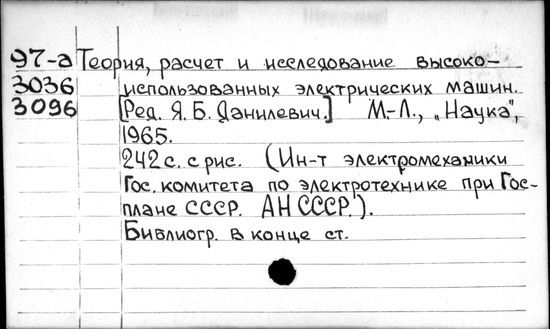 97-а Теория, расчет и исследование высоко-
3036 использованных электрических машин.
3096 [Ред. Я. Б. Данилевич.] М.-Л., „Наука",
1965.
242 с. с рис. (Ин-т электромеханики
Гос. комитета по электротехнике при Гос-
плане СССР. АН СССР.).
Библиогр. в конце ст.